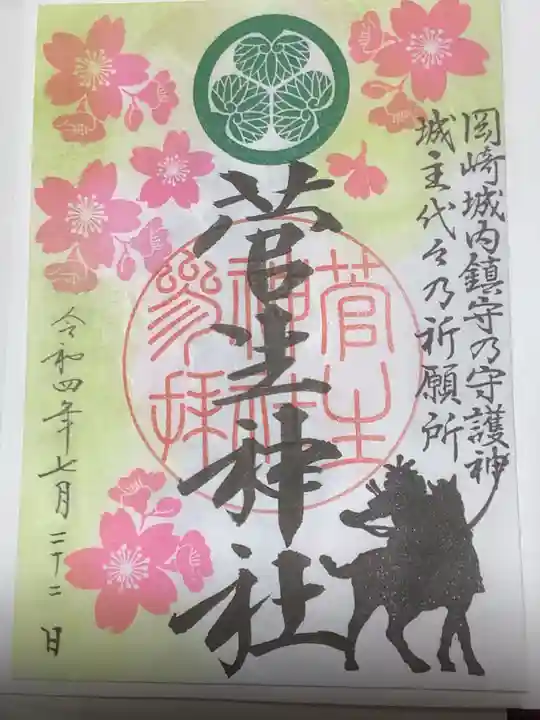 岡崎城内鎮守乃守護神
城主代々乃祈願所
菅生神社
菅生
神社
参拝
令和四年七月二十二日